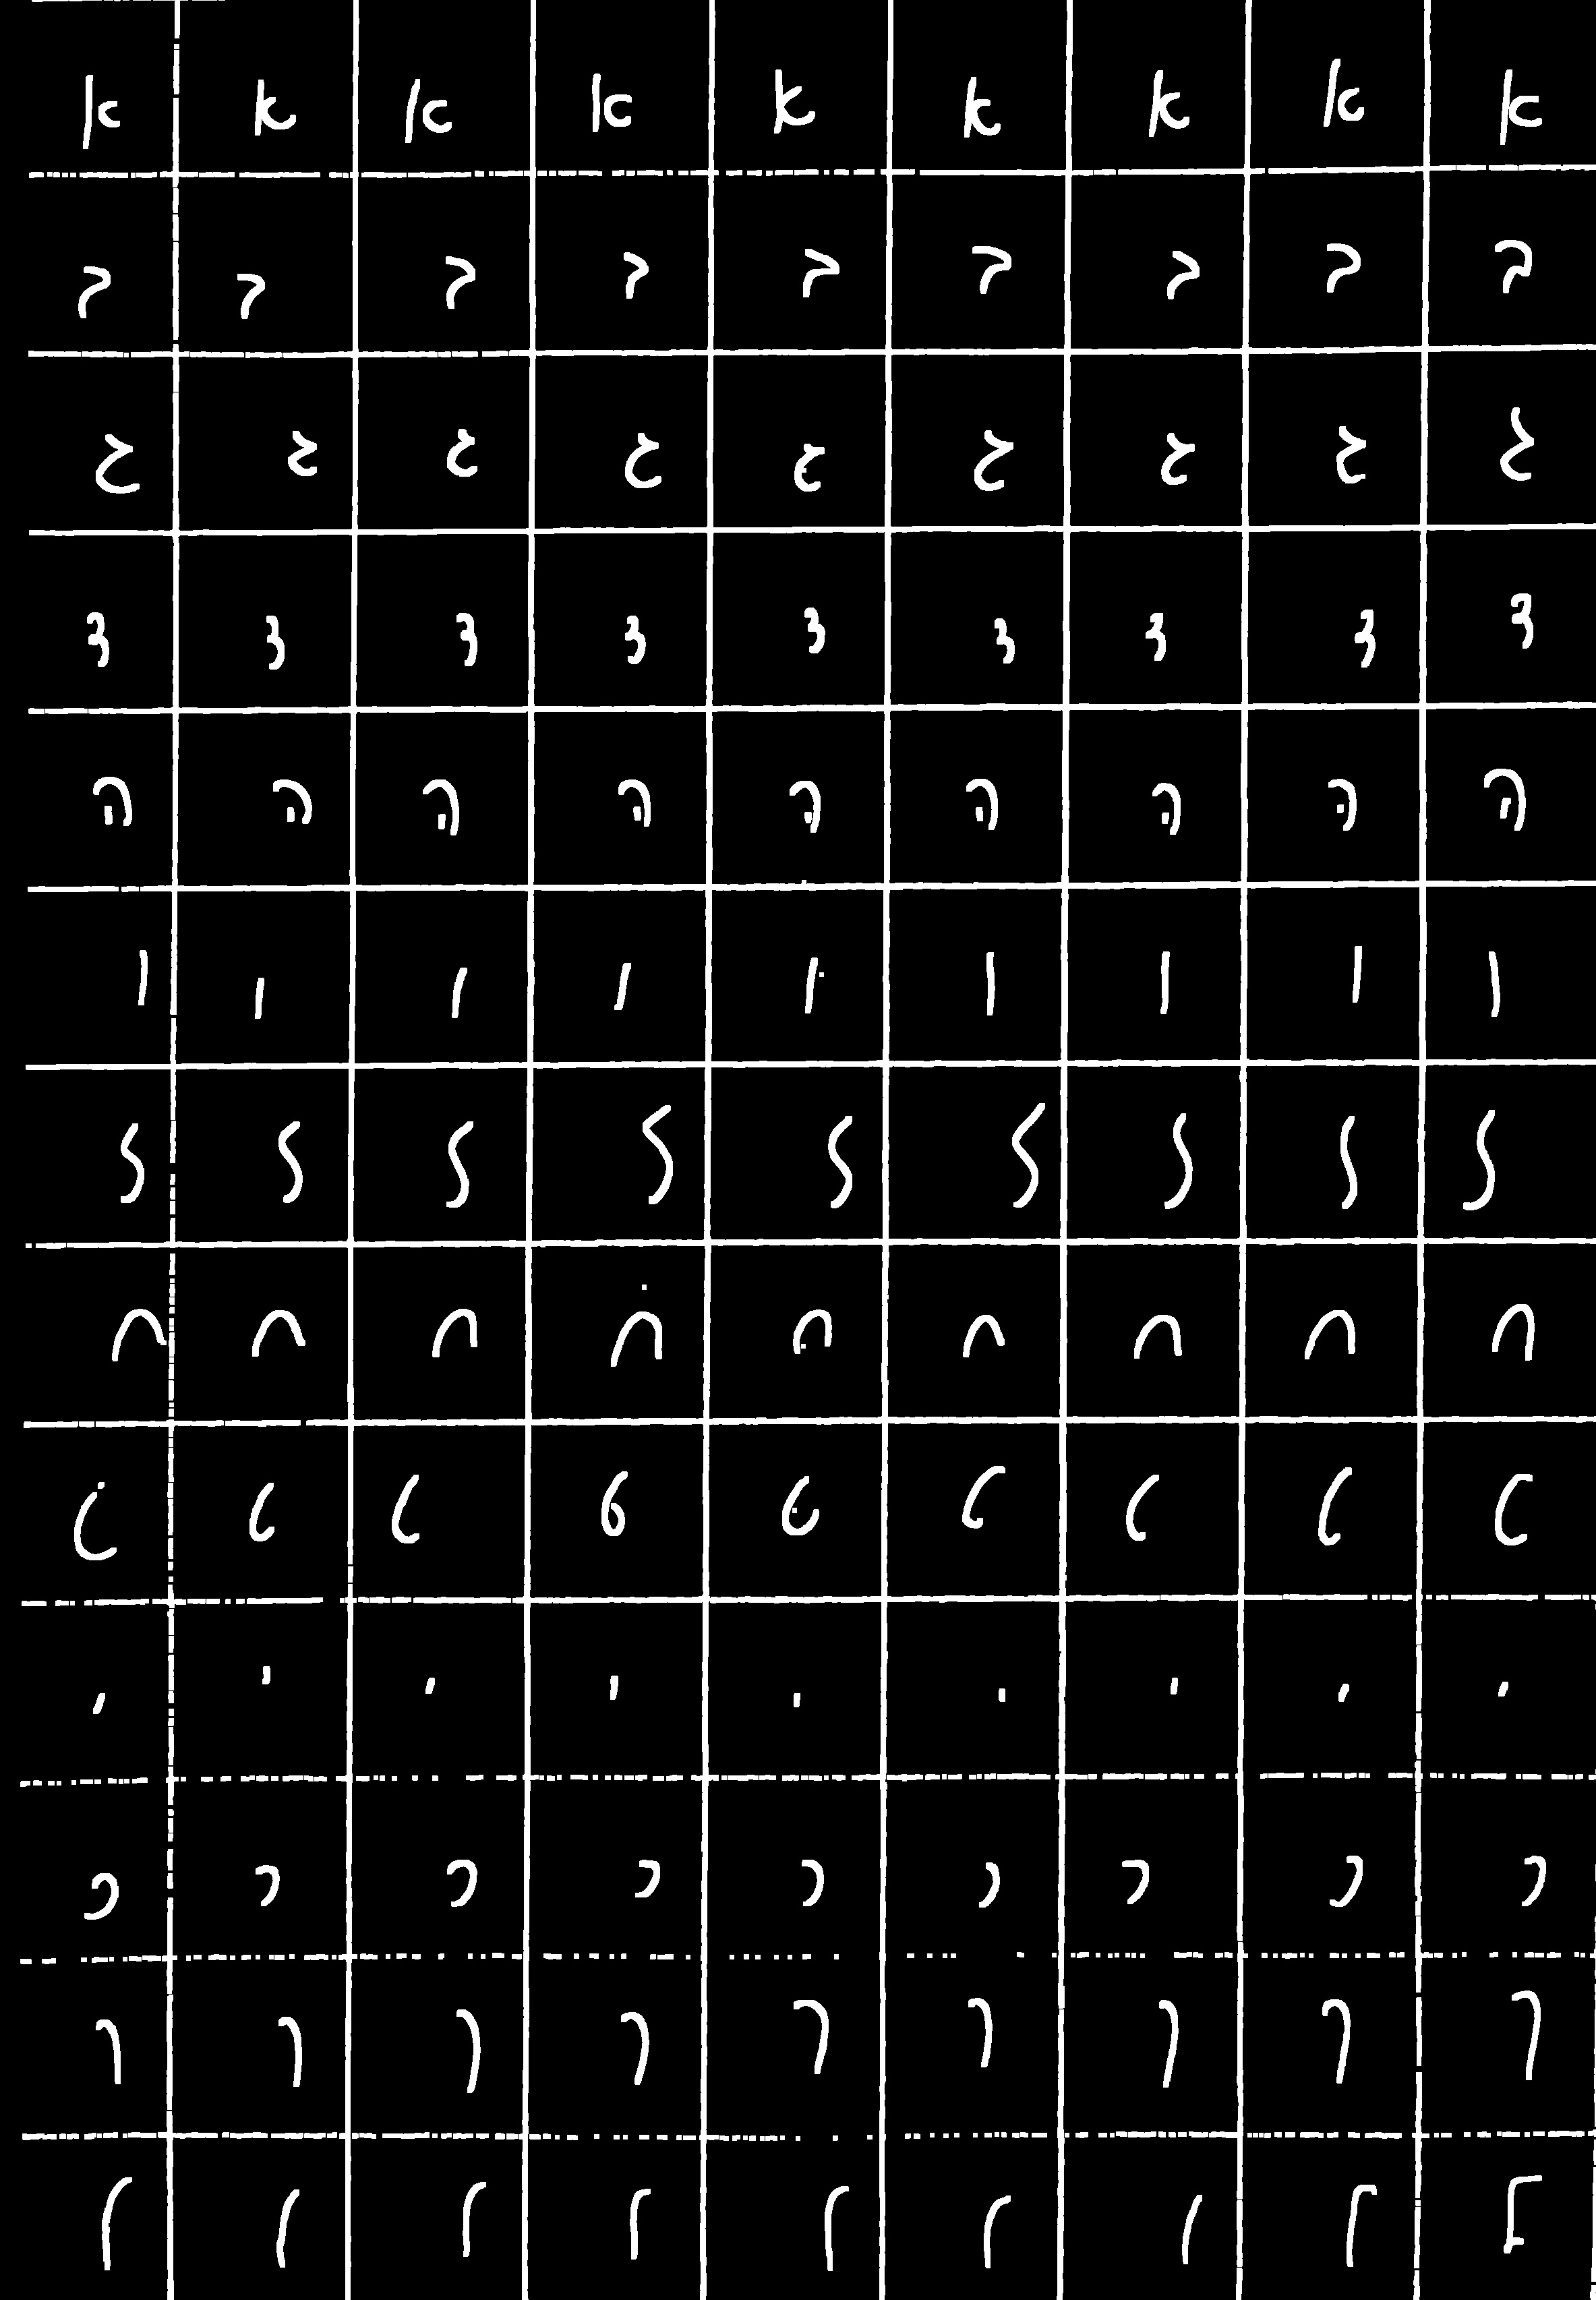 א א א א א א א א א
ב ב ב ב ב ב ב ב ב
ג ג ג ג ג ג ג ג ג
ד ד ד ד ד ד ד ד ד
ה ה ה ה ה ה ה ה ה
ו ו ו ו ו ו ו ו ו
ז ז ז ז ז ז ז ז ז
ח ח ח ח ח ח ח ח ח
ט ט ט ט ט ט ט ט ט
י י י י י י י י י
כ כ כ כ כ כ כ כ כ
ך ך ך ך ך ך ך ך ך
ל ל ל ל ל ל ל ל ל